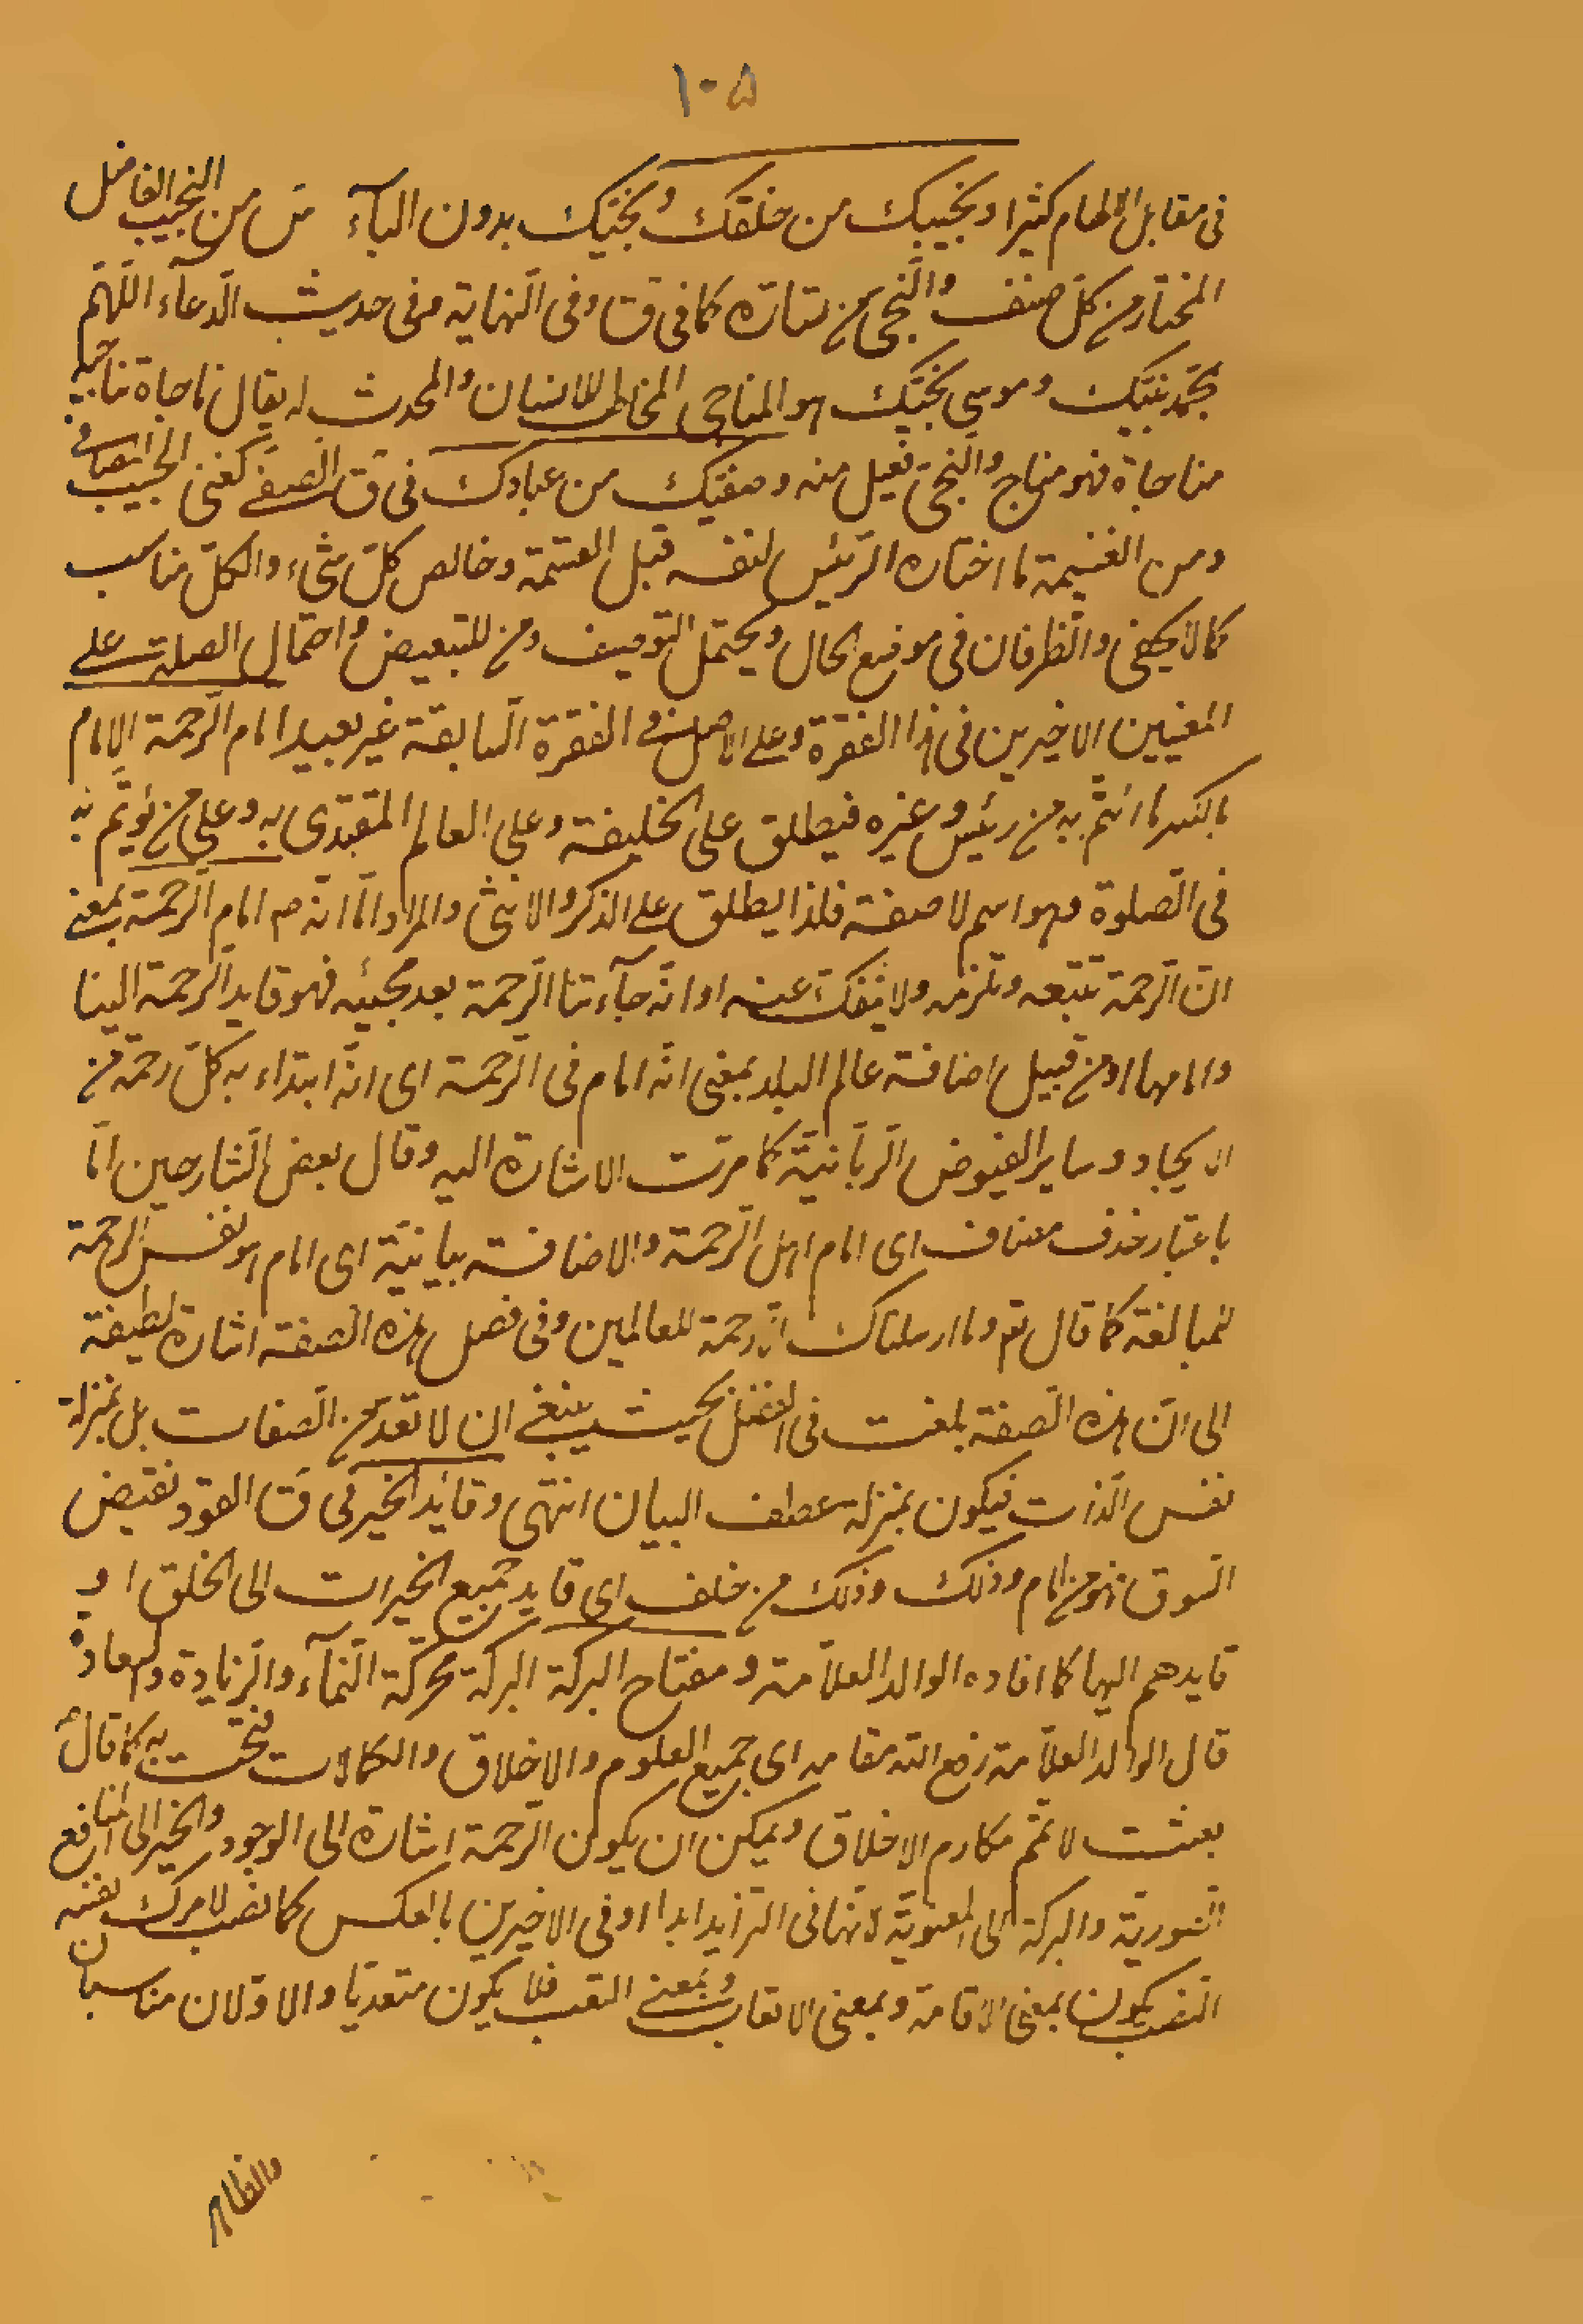 ١٠٥
فى مقابل الالهام كثيرا ونجيبك من خلقك ونجيّك بدون البآء ش من النجيب الفاضل
المختار من كلّ صنف والنجىّ من تسارّه كما فى ق وفى النهاية وفى حديث الدّعآء اللّهمّ
بمحمد نبيّك وموسى نجيّك هو المناجى المخاطب للانسان والمحدث له يقال ناجاه يناجيه
مناجاة فهو مناج والنجىّ فعيل منه وصفيّك من عبادك فى ق الصّفىّ كغنى الحبيب المصافى
ومن الغنيمة ما اختاره الرّئيس لنفسه قبل القسمة وخالص كلّ شىء والكلّ مناسب
كما لا يخفى والظّرفان فى موضع الحال ويحتمل التوصيف ومن للتبعيض واحتمال الصلة على
المعنيين الاخيرين فى هذا الفقرة وعلى الاصل فى الفقرة السّابقة غير بعيد امام الرّحمة الامام
بالكسر ما ائتمّ به من رئيس وغيره فيطلق على الخليفة وعلى العالم المقتدى به وعلى من يؤتمّ به
فى الصّلوة وهو اسم لا صفة فلذا يطلق على الذكر والانثى والمراد امّا انّه ص امام الرّحمة بمعنى
انّ الرّحمة تتبعه وتلزمه ولا ينفكّ عنه او انّه جآءتنا الرّحمة بعد مجيئه فهو قايد الرّحمة الينا
وامامها او من قبيل اضافة عالم البلد بمعنى انّه امام فى الرّحمة اى انّه ابتداء به كلّ رحمة من
الايجاد وساير الفيوض الرّبّانيّة كما مرّت الاشارة اليه وقال بعض الشّارحين امّا
باعتبار حذف مضاف اى امام اهل الرّحمة والاضافة بيانيّة اى امام هو نفس الرحمة
للمبالغة كما قال تع وما ارسلناك الّا رحمة للعالمين وفى فصل هذه الصّفة اشارة لطيفة
الى انّ هذه الصّفة بلغت فى الفضل بحيث ينبغى ان لا تعدّ من الصّفات بل بمنزلة
نفس الذّات فيكون بمنزلة عطف البيان انتهى وقائد الخير فى ق القود نقيض
السّوق فهو من امام وذلك وذلك من خلف اى قايد جميع الخيرات الى الخلق او
قايدهم اليها كما افاده الوالد العلّامة ومفتاح البركة البركة محرّكة النّمآء والزّيادة والسعادة
قال الوالد العلّامة رفع اللّه مقامه اى جميع العلوم والاخلاق والكمالات فتحت به كما قال ص
بعثت لاتمّم مكارم الاخلاق ويمكن ان يكون الرّحمة اشارة الى الوجود والخير الى المنافع
الصّورية والبركة الى المعنويّة لانّها فى التزايد ابدا او فى الاخيرين بالعكس كما نصب لامرك نفسه
النصب يكون بمعنى الاقامة وبمعنى الاتعاب وبمعنى التعب فلا يكون متعديّا والاوّلان مناسبان
والظاهر